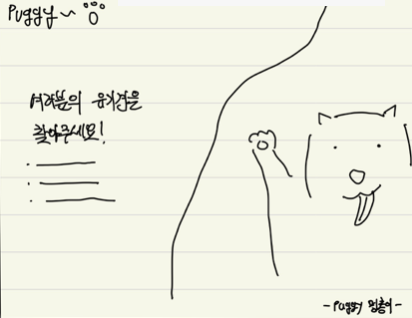 Puggy~
여러분의 유기견을
찾아주세요!
- Puggy 멍총이 -